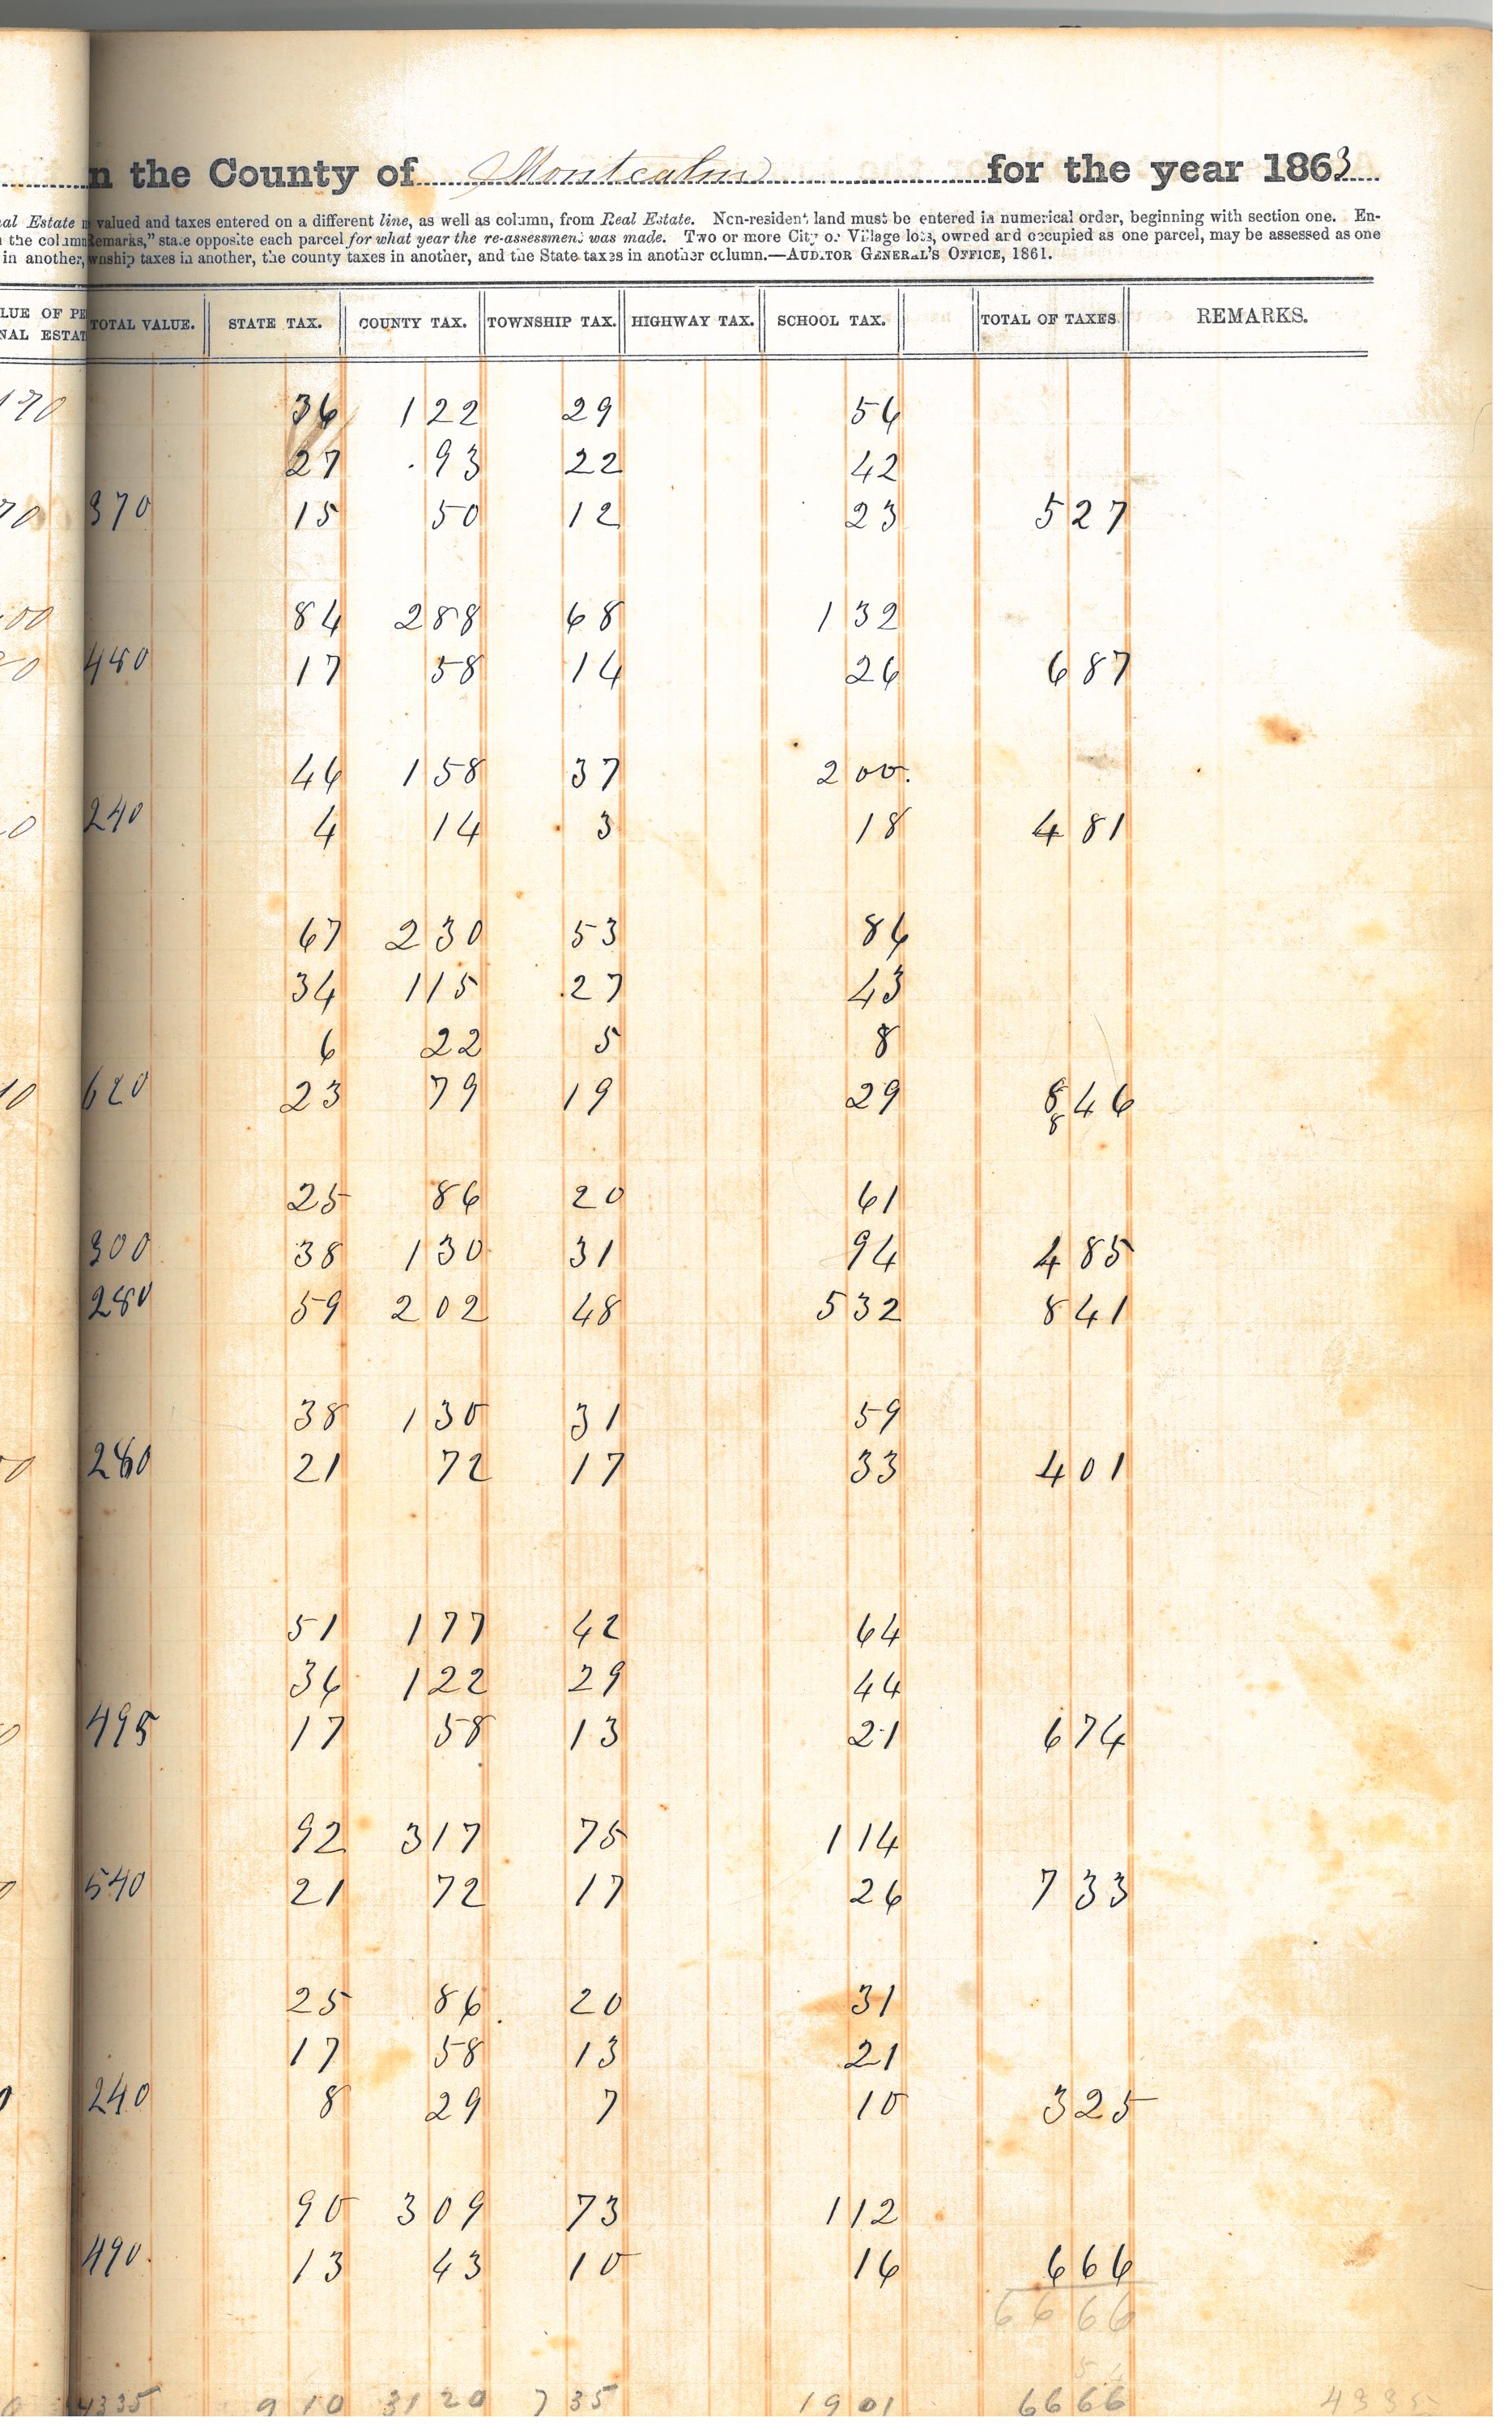 n the County of Montcalm for the year 1863
al Estate valued and taxes entered on a different line, as well as column, from Real Estate. Non-resident land must be entered in numerical order, beginning with section one. En-
the column emarks," state opposite each parcel for what year the re-assessment was made. Two or more City or Village lots, owned and occupied as one parcel, may be assessed as one
in another, wnship taxes in another, the county taxes in another, and the State taxes in another column.—AUDITOR GENERAL'S OFFICE, 1861.
LUE OF PE TOTAL VALUE. STATE TAX. COUNTY TAX. TOWNSHIP TAX. HIGHWAY TAX. SCHOOL TAX. TOTAL OF TAXES REMARKS.
NAL ESTAT
170 36 1 22 29 56
27 93 22 42
70 370 15 50 12 23 5 27
00 84 2 88 68 1 32
480 17 58 14 26 6 87
46 1 58 37 2 00.
0 240 4 14 3 18 4 81
67 2 30 53 86
34 1 15 27 43
6 22 5 8
10 620 23 79 19 29 8 46
8
25 86 20 61
300 38 1 30 31 94 4 85
280 59 2 02 48 5 32 8 41
38 1 30 31 59
0 280 21 72 17 33 4 01
51 1 77 42 64
36 1 22 29 44
495 17 58 13 21 6 74
92 3 17 75 1 14
540 21 72 17 26 7 33
25 86 20 31
17 58 13 21
240 8 29 7 10 3 25
90 3 09 73 1 12
490 13 43 10 16 6 66
66 66
4335 9 10 31 20 7 35 19 01 66 66 4335